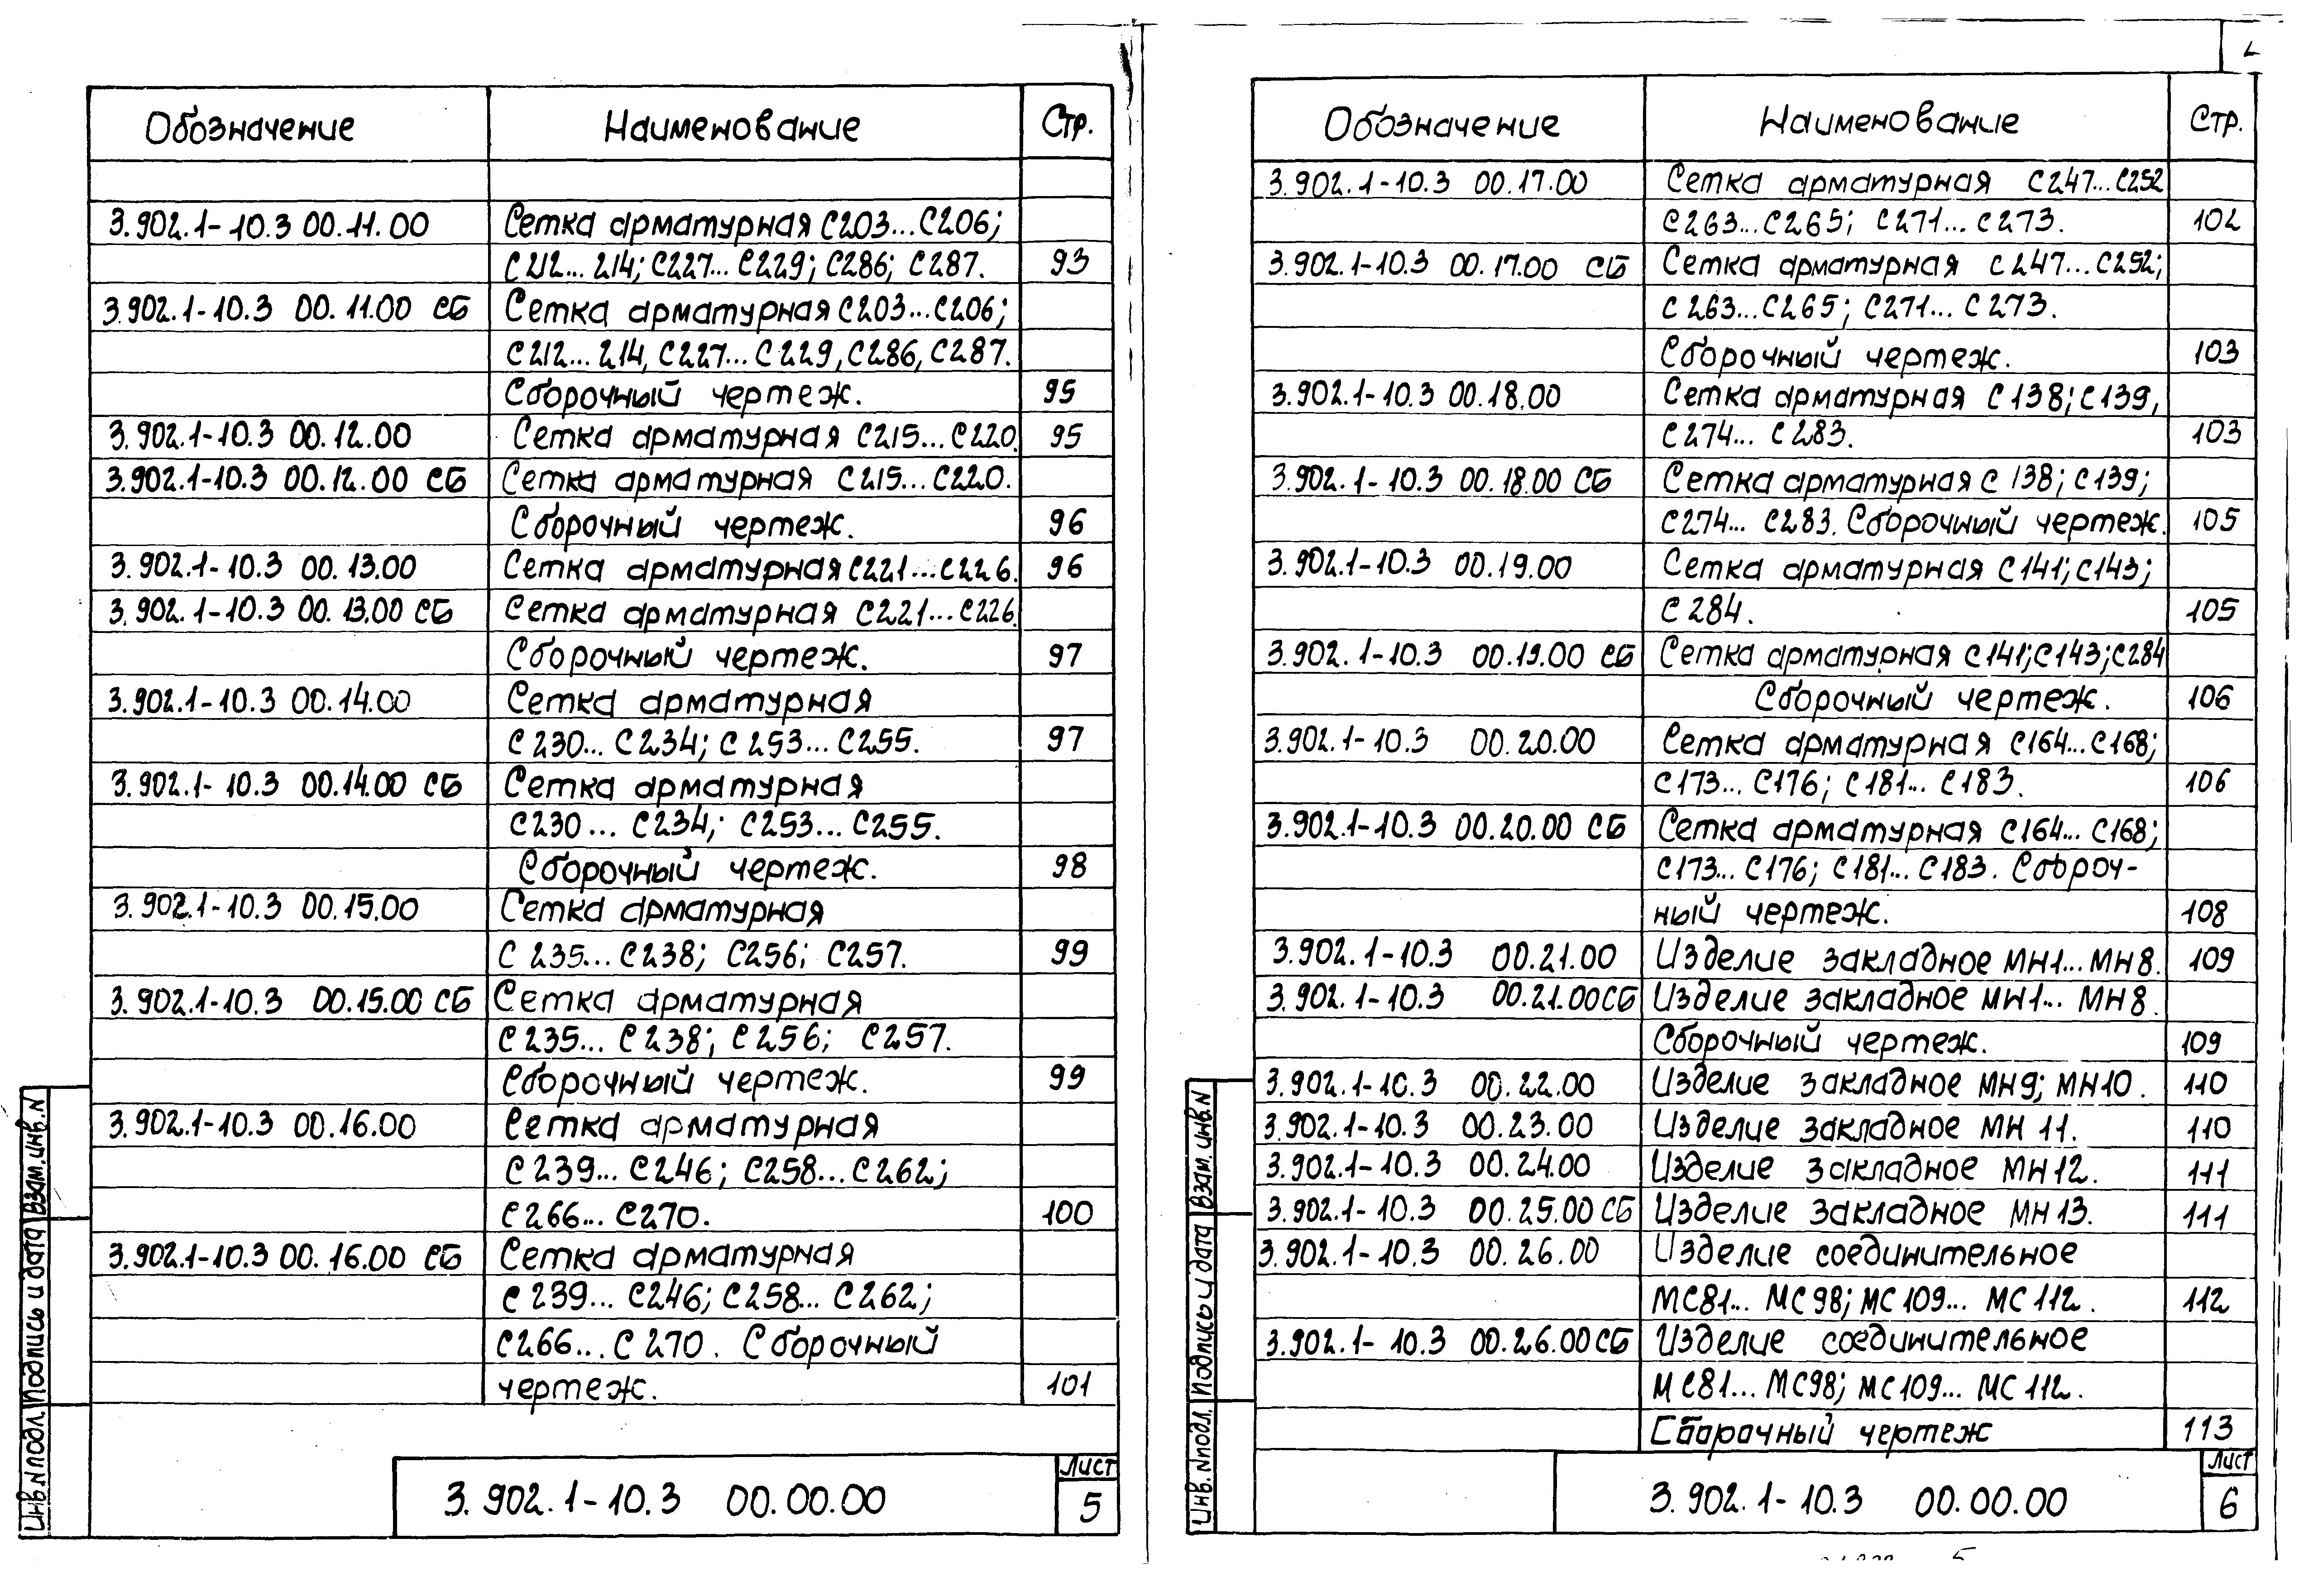 Обозначение Наименование Стр.
3.902.1-10.3 00.11.00 Сетка арматурная С203...С206;
С212... 214; С227... С229; С286; С287. 93
3.902.1-10.3 00.11.00 СБ Сетка арматурная С203...С206;
С212... 214, С227... С229, С286, С287.
Сборочный чертеж. 95
3.902.1-10.3 00.12.00 Сетка арматурная С215...С220. 95
3.902.1-10.3 00.12.00 СБ Сетка арматурная С215...С220.
Сборочный чертеж. 96
3.902.1-10.3 00.13.00 Сетка арматурная С221...С226. 96
3.902.1-10.3 00.13.00 СБ Сетка арматурная С221...С226.
Сборочный чертеж. 97
3.902.1-10.3 00.14.00 Сетка арматурная
С230... С234; С253... С255. 97
3.902.1-10.3 00.14.00 СБ Сетка арматурная
С230... С234; С253... С255.
Сборочный чертеж. 98
3.902.1-10.3 00.15.00 Сетка арматурная
С235... С238; С256; С257. 99
3.902.1-10.3 00.15.00 СБ Сетка арматурная
С235... С238; С256; С257.
Сборочный чертеж. 99
3.902.1-10.3 00.16.00 Сетка арматурная
С239... С246; С258... С262;
С266... С270. 100
3.902.1-10.3 00.16.00 СБ Сетка арматурная
С239... С246; С258... С262;
С266... С270. Сборочный
чертеж. 101
Инв.Nподл. Подпись и дата Взам.инв.N
3.902.1-10.3 00.00.00
Лист
5
Обозначение Наименование Стр.
3.902.1-10.3 00.17.00 Сетка арматурная С247...С252
С263...С265; С271... С273. 102
3.902.1-10.3 00.17.00 СБ Сетка арматурная С247...С252;
С263...С265; С271... С273.
Сборочный чертеж. 103
3.902.1-10.3 00.18.00 Сетка арматурная С138; С139,
С274... С283. 103
3.902.1-10.3 00.18.00 СБ Сетка арматурная С138; С139;
С274... С283. Сборочный чертеж. 105
3.902.1-10.3 00.19.00 Сетка арматурная С141; С143;
С284. 105
3.902.1-10.3 00.19.00 СБ Сетка арматурная С141; С143; С284
Сборочный чертеж. 106
3.902.1-10.3 00.20.00 Сетка арматурная С164... С168;
С173... С176; С181... С183. 106
3.902.1-10.3 00.20.00 СБ Сетка арматурная С164... С168;
С173... С176; С181... С183. Сбороч-
ный чертеж. 108
3.902.1-10.3 00.21.00 Изделие закладное МН1... МН8. 109
3.902.1-10.3 00.21.00СБ Изделие закладное МН1... МН8.
Сборочный чертеж. 109
3.902.1-10.3 00.22.00 Изделие закладное МН9; МН10. 110
3.902.1-10.3 00.23.00 Изделие закладное МН 11. 110
3.902.1-10.3 00.24.00 Изделие закладное МН12. 111
3.902.1-10.3 00.25.00 СБ Изделие закладное МН13. 111
3.902.1-10.3 00.26.00 Изделие соединительное
МС81... МС98; МС109... МС112. 112
3.902.1-10.3 00.26.00СБ Изделие соединительное
МС81... МС98; МС109... МС112.
Сборочный чертеж 113
Инв.Nподл. Подпись и дата Взам.инв.N
3.902.1-10.3 00.00.00
Лист
6